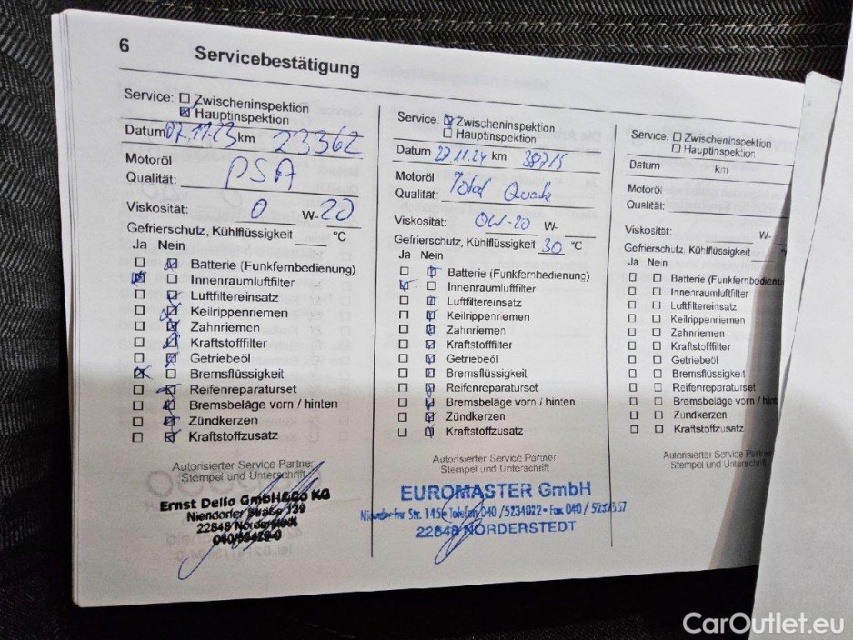 6 Servicebestätigung
Service: Zwischeninspektion
Hauptinspektion
Datum 07.11.23 km 23362
Motoröl
Qualität: PSA
Viskosität: 0 W- 20
Gefrierschutz, Kühlflüssigkeit °C
Ja Nein
Batterie (Funkfernbedienung)
Innenraumluftfilter
Luftfiltereinsatz
Keilrippenriemen
Zahnriemen
Kraftstofffilter
Getriebeöl
Bremsflüssigkeit
Reifenreparaturset
Bremsbeläge vorn / hinten
Zündkerzen
Kraftstoffzusatz
Autorisierter Service Partner
Stempel und Unterschrift
Ernst Dello GmbH&Co KG
Niendorfer Straße 139
22848 Norderstedt
Service: Zwischeninspektion
Hauptinspektion
Datum 27.11.24 km
Motoröl Total
Qualität:
Viskosität: 0W-20 W-
Gefrierschutz, Kühlflüssigkeit 30 °C
Ja Nein
Batterie (Funkfernbedienung)
Innenraumluftfilter
Luftfiltereinsatz
Keilrippenriemen
Zahnriemen
Kraftstofffilter
Getriebeöl
Bremsflüssigkeit
Reifenreparaturset
Bremsbeläge vorn / hinten
Zündkerzen
Kraftstoffzusatz
Autorisierter Service Partner
Stempel und Unterschrift
EUROMASTER GmbH
Str. Telefon 040 /5234022 • Fax 040 /
22848 NORDERSTEDT
Service: Zwischeninspektion
Hauptinspektion
Datum km
Motoröl
Qualität:
Viskosität: W-
Gefrierschutz, Kühlflüssigkeit
Ja Nein
Batterie (Funkfernbedienun
Innenraumluftfilter
Luftfiltereinsatz
Keilrippenriemen
Zahnriemen
Kraftstofffilter
Getriebeöl
Bremsflüssigkeit
Reifenreparaturset
Bremsbeläge vorn / hint
Zündkerzen
Kraftstoffzusatz
Autorisierter Service Part
Stempel und Unterschrift
CarOutlet.eu